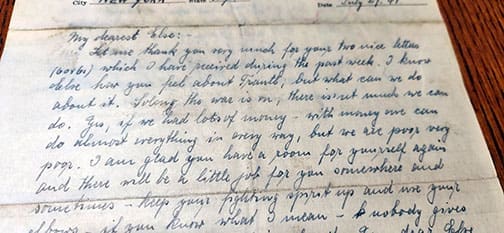 City New York State Date July 27. 41
My dearest Else:-
Let me thank you very much for your two nice letters
(60+61) which I have received during the past week. I know
else how you feel about Trautl, but what can we do
about it. Solong the war is on, there is not much we can
do. Yes, if we had lots of money - with money one can
do almost everything in every way, but we are poor very
poor. I am glad you have a room for yourself again
and there will be a little job for you somewhere and
sometimes - Keep your fighting spirit up and use your
elbows - if you know what I mean - nobody gives
dear Else